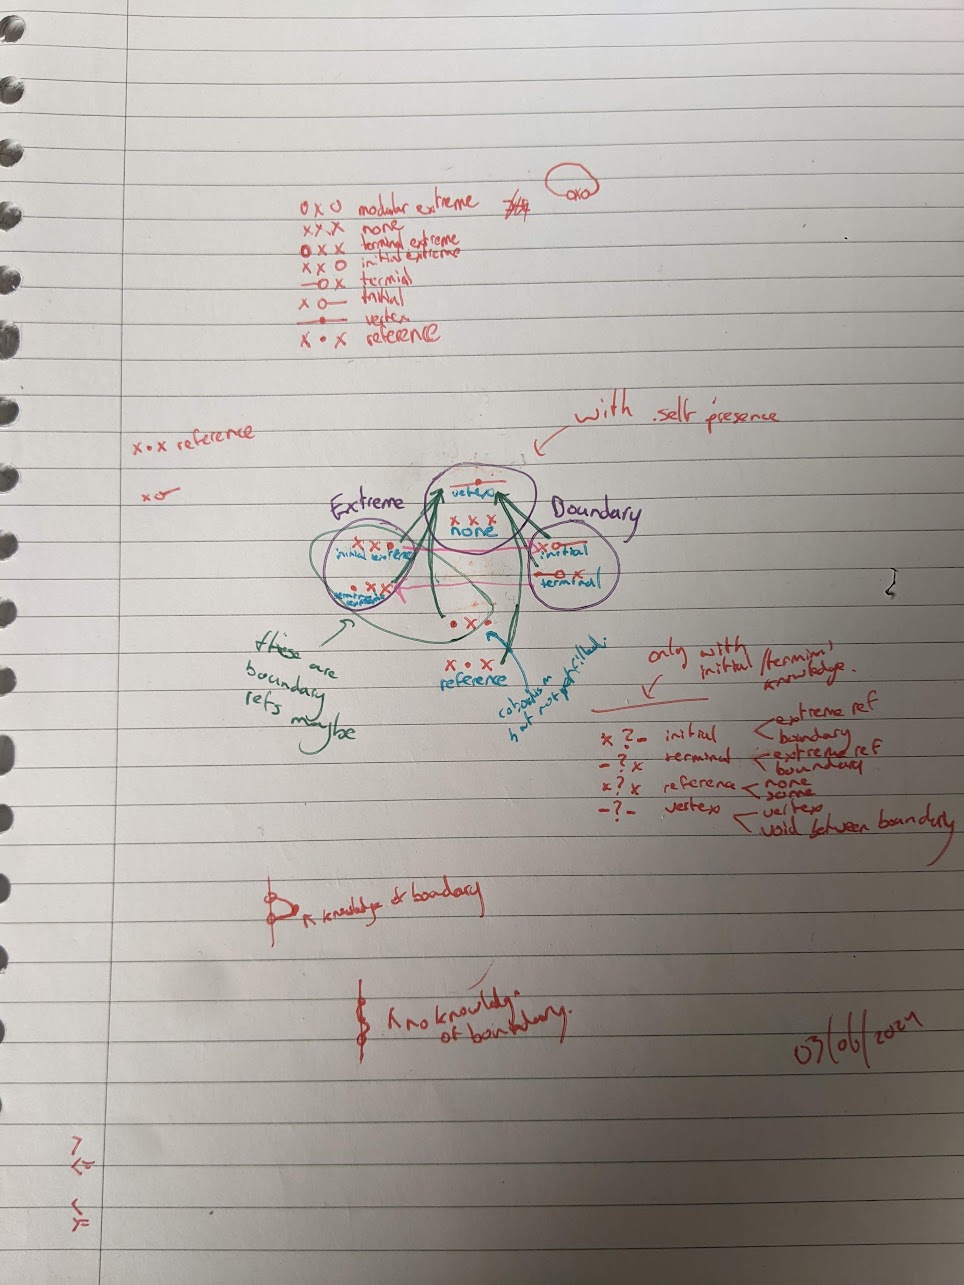 oxo
o x o modular extreme
x x x none
o x x terminal extreme
x x o initial extreme
—o x termial
x o— initial
—•— vertex
x • x reference
x • x reference
with self presence
Extreme
vertex
x x x
none
Boundary
x x •
initial extreme
x o—
initial
• x x
—o x
terminal
• x •
x • x
reference
these are
boundary
refs maybe
but not
only with
initial/terminal
knowledge.
x ? – initial
extreme ref
boundary
– ? x terminal
extreme ref
boundary
x ? x reference
none
some
– ? – vertex
vertex
void between boundary
knowledge of boundary
no knowledge
of boundary.
03/06/2024
>
<=
<
>=